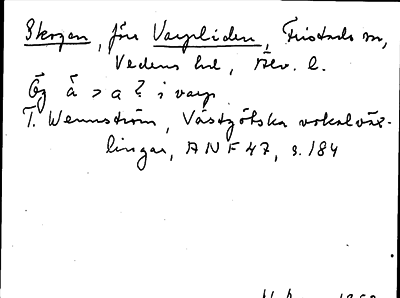 Skogen, före Vargliden, Fristads sn,
Vedens hd, Älv. l.
Äg å > a? i varg
T. Wennström, Västgötska vokalväx-
lingar, ANF 47, s. 184